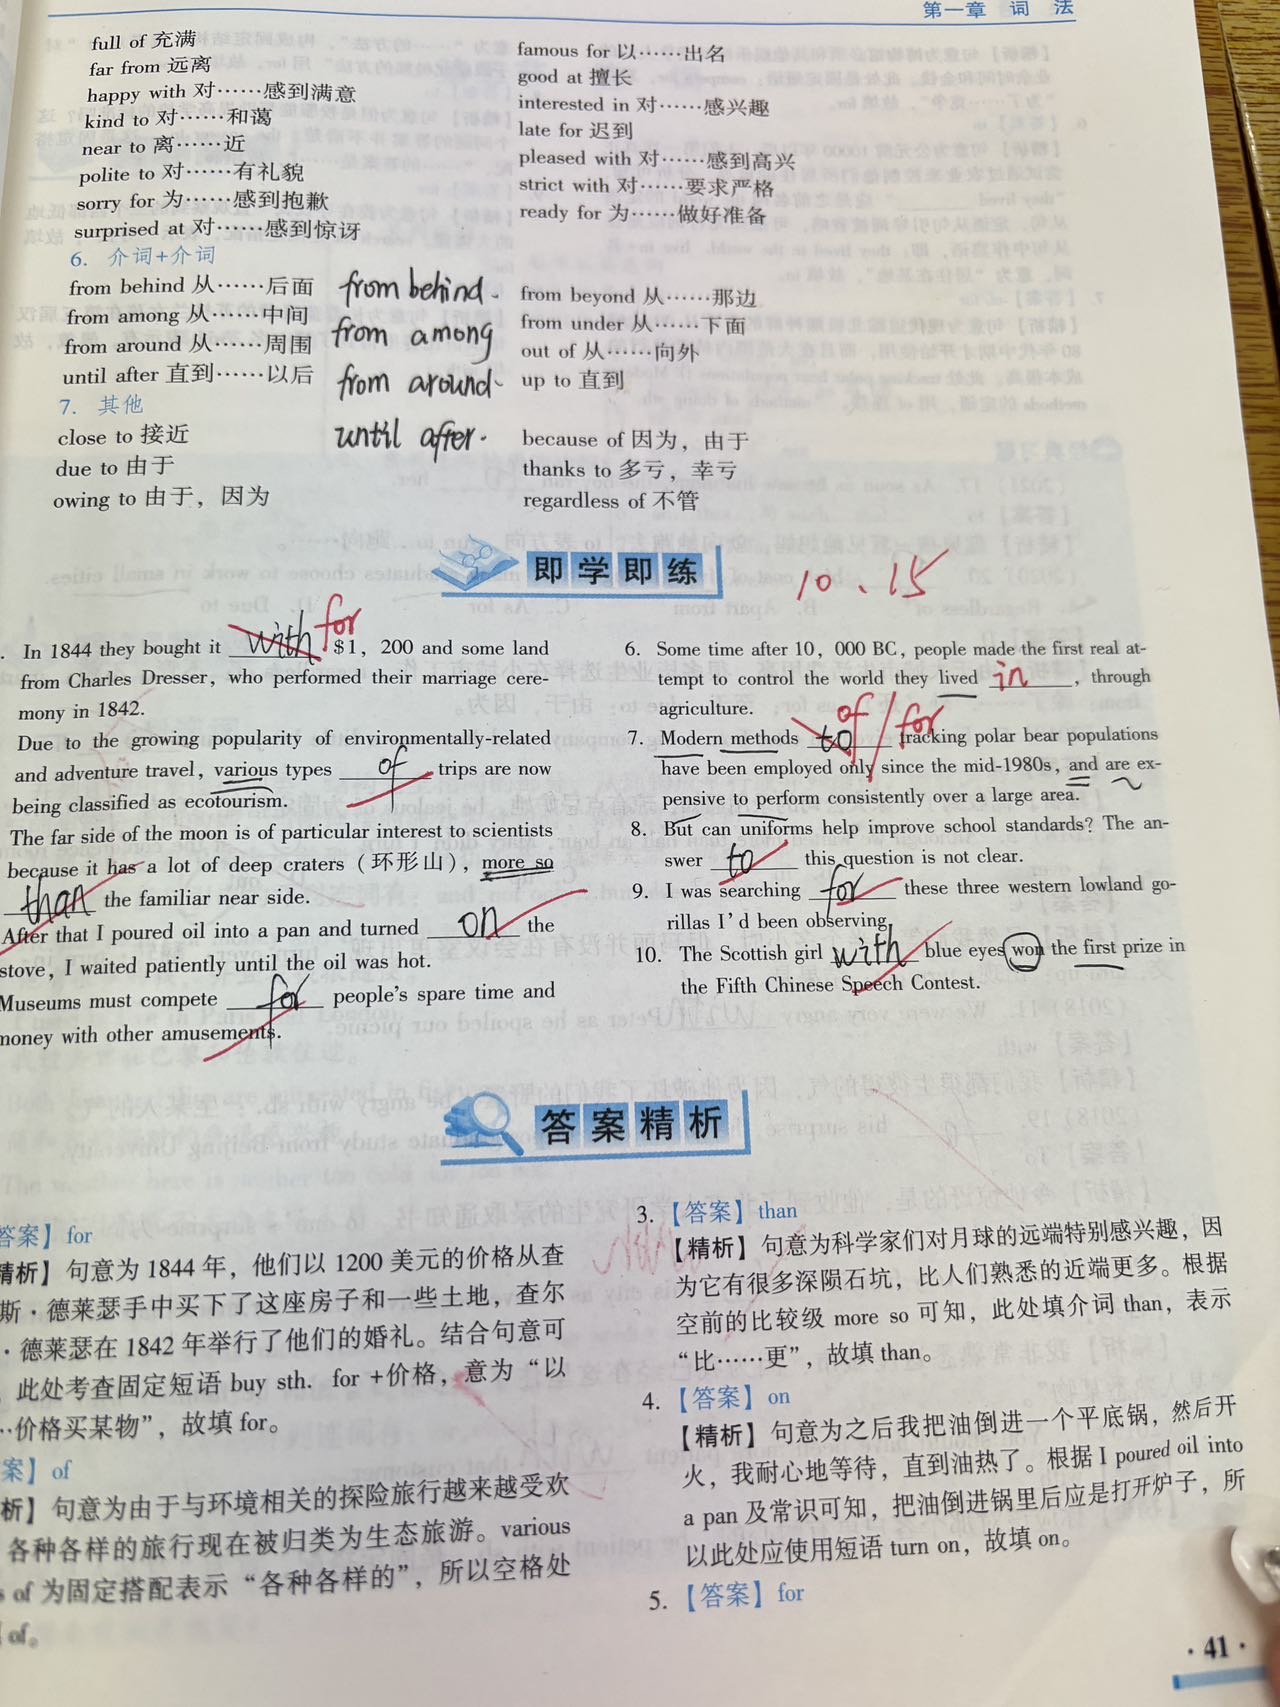 第一章 词 法
full of 充满
far from 远离
happy with 对……感到满意
kind to 对……和蔼
near to 离……近
polite to 对……有礼貌
sorry for 为……感到抱歉
surprised at 对……感到惊讶
famous for 以……出名
good at 擅长
interested in 对……感兴趣
late for 迟到
pleased with 对……感到高兴
strict with 对……要求严格
ready for 为……做好准备
6. 介词+介词
from behind 从……后面
from among 从……中间
from around 从……周围
until after 直到……以后
from behind.
from among
from around.
until after.
from beyond 从……那边
from under 从……下面
out of 从……向外
up to 直到
7. 其他
close to 接近
due to 由于
owing to 由于，因为
because of 因为，由于
thanks to 多亏，幸亏
regardless of 不管
即学即练
10、15
. In 1844 they bought it with for $1, 200 and some land
from Charles Dresser, who performed their marriage cere-
mony in 1842.
Due to the growing popularity of environmentally-related
and adventure travel, various types of trips are now
being classified as ecotourism.
The far side of the moon is of particular interest to scientists
because it has a lot of deep craters (环形山), more so
than the familiar near side.
After that I poured oil into a pan and turned on the
stove, I waited patiently until the oil was hot.
Museums must compete for people's spare time and
money with other amusements.
6. Some time after 10, 000 BC, people made the first real at-
tempt to control the world they lived in, through
agriculture.
7. Modern methods to of/for tracking polar bear populations
have been employed only since the mid-1980s, and are ex-
pensive to perform consistently over a large area.
8. But can uniforms help improve school standards? The an-
swer to this question is not clear.
9. I was searching for these three western lowland go-
rillas I'd been observing.
10. The Scottish girl with blue eyes won the first prize in
the Fifth Chinese Speech Contest.
答案精析
答案】for
精析】句意为 1844 年，他们以 1200 美元的价格从查
斯·德莱瑟手中买下了这座房子和一些土地，查尔
·德莱瑟在 1842 年举行了他们的婚礼。结合句意可
，此处考查固定短语 buy sth. for +价格，意为“以
…价格买某物”，故填 for。
案】of
析】句意为由于与环境相关的探险旅行越来越受欢
各种各样的旅行现在被归类为生态旅游。various
s of 为固定搭配表示“各种各样的”，所以空格处
of。
3. 【答案】than
【精析】句意为科学家们对月球的远端特别感兴趣，因
为它有很多深陨石坑，比人们熟悉的近端更多。根据
空前的比较级 more so 可知，此处填介词 than，表示
“比……更”，故填 than。
4. 【答案】on
【精析】句意为之后我把油倒进一个平底锅，然后开
火，我耐心地等待，直到油热了。根据 I poured oil into
a pan 及常识可知，把油倒进锅里后应是打开炉子，所
以此处应使用短语 turn on，故填 on。
5. 【答案】for
·41·